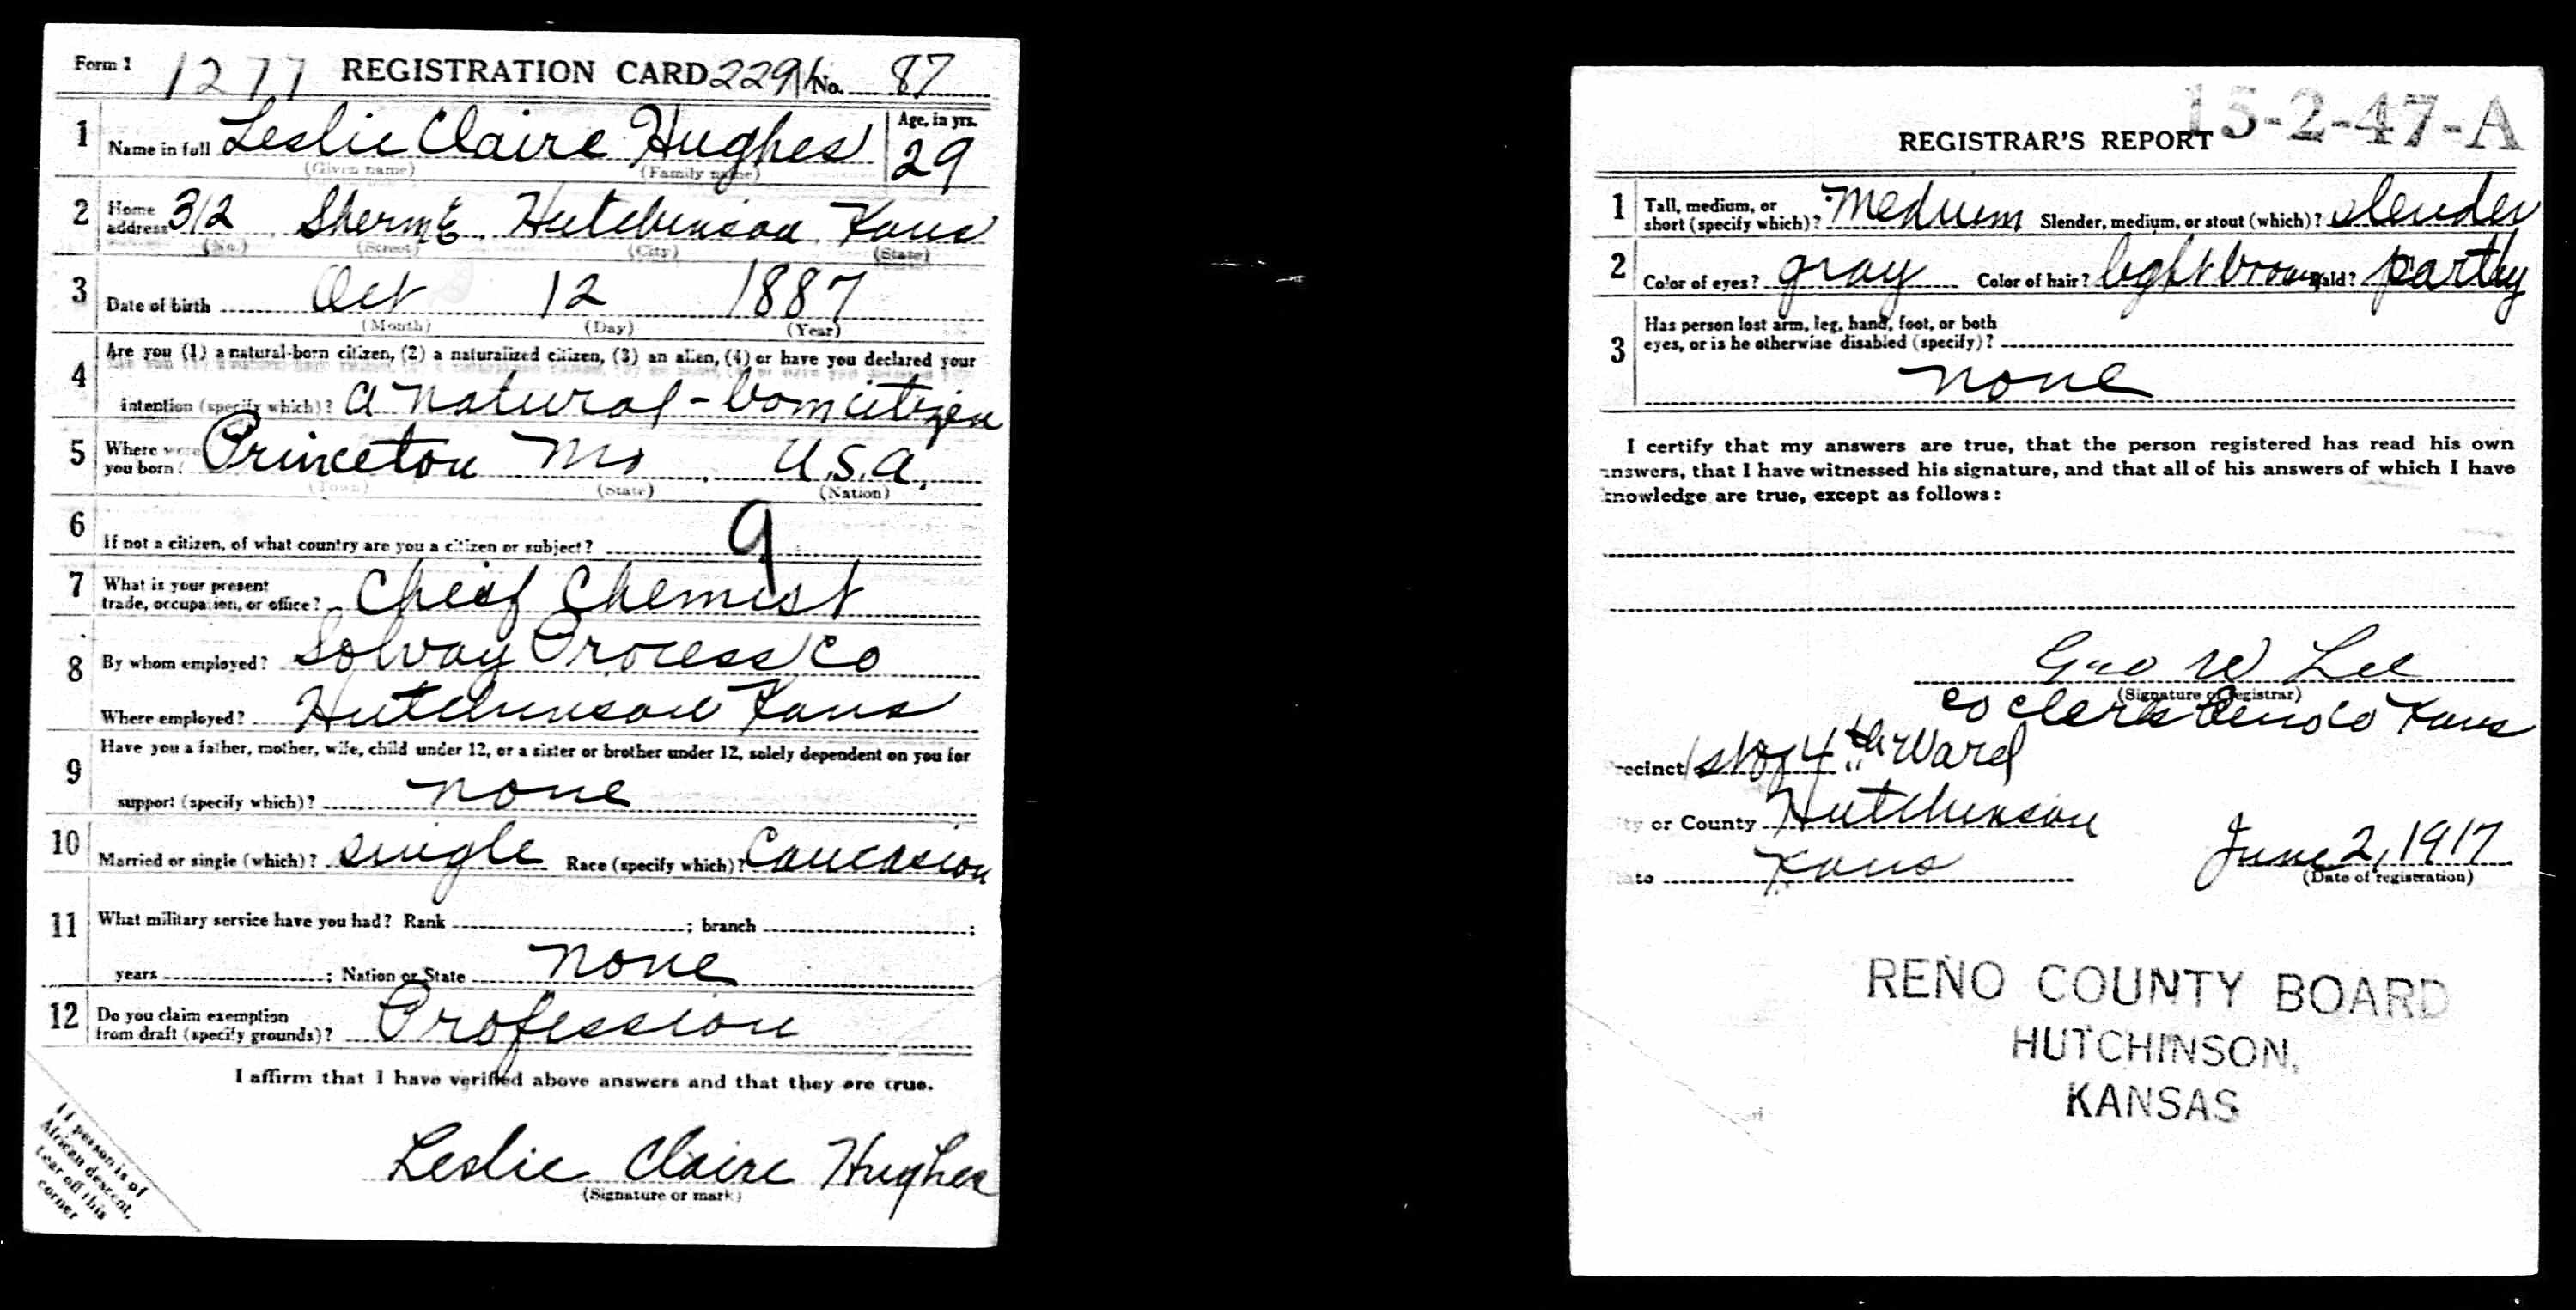 Form 1 1277 REGISTRATION CARD 2291 No. 87
1 Name in full Leslie Claire Hughes Age, in yrs. 29
(Given name) (Family name)
2 Home address 312 Sherm E. Hutchinson Kans
(No.) (Street) (City) (State)
3 Date of birth Oct 12 1887
(Month) (Day) (Year)
4 Are you (1) a natural-born citizen, (2) a naturalized citizen, (3) an alien, (4) or have you declared your
intention (specify which)? a natural-born citizen
5 Where were you born? Princeton Mo, U.S.A,
(Town) (State) (Nation)
6 If not a citizen, of what country are you a citizen or subject? 9
7 What is your present trade, occupation, or office? Cheif Chemist
8 By whom employed? Solvay Process Co
Where employed? Hutchinson Kans
9 Have you a father, mother, wife, child under 12, or a sister or brother under 12, solely dependent on you for
support (specify which)? none
10 Married or single (which)? single Race (specify which)? Caucasion
11 What military service have you had? Rank ; branch ;
years ; Nation or State none
12 Do you claim exemption from draft (specify grounds)? Profession
I affirm that I have verified above answers and that they are true.
Leslie Claire Hughes
(Signature or mark)
If person is of
African descent,
tear off this
corner
15-2-47-A
REGISTRAR'S REPORT
1 Tall, medium, or short (specify which)? Medium Slender, medium, or stout (which)? slender
2 Color of eyes? gray Color of hair? light brown Bald? partly
3 Has person lost arm, leg, hand, foot, or both
eyes, or is he otherwise disabled (specify)?
none
I certify that my answers are true, that the person registered has read his own
answers, that I have witnessed his signature, and that all of his answers of which I have
knowledge are true, except as follows:
Geo W Lee
(Signature of registrar)
Co Clerk Reno Co Kans
Precinct 1st of 4th Ward
City or County Hutchinson
State Kans June 2, 1917
(Date of registration)
RENO COUNTY BOARD
HUTCHINSON,
KANSAS